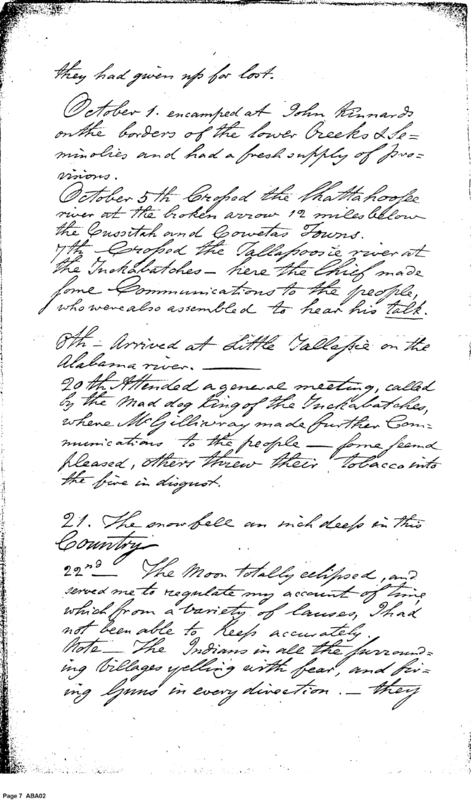 they had given up for lost.
October 1. encamped at John Kinnards
on the borders of the lower Creeks & Se=
minolies and had a fresh supply of pro=
visions.
October 5th Crossed the Chattahoosee
river at the broken arrow 12 miles below
the Cussitah and Cowetas Towns.
7th Crossed the Tallapoosie river at
the Tuckabatches — here the Chief made
some Communications to the people,
who were also assembled to hear his talk.
8th — Arrived at Little Tallasie on the
Alabama river. —
20th Attended a general meeting, called
by the Mad dog King of the Tuckabatches,
where McGilliwray made further Com=
munications to the people — some seemd
pleased, others threw their tobacco into
the fire in disgust.
21. The snow fell an inch deep in this
Country
22nd — The Moon totally eclipsed, and
served me to regulate my account of time,
which from a variety of causes, I had
not been able to keep accurately
Note — The Indians in all the surround=
ing Villages yelling with fear, and fir=
ing Guns in every direction. — they
Page 7 ABA02